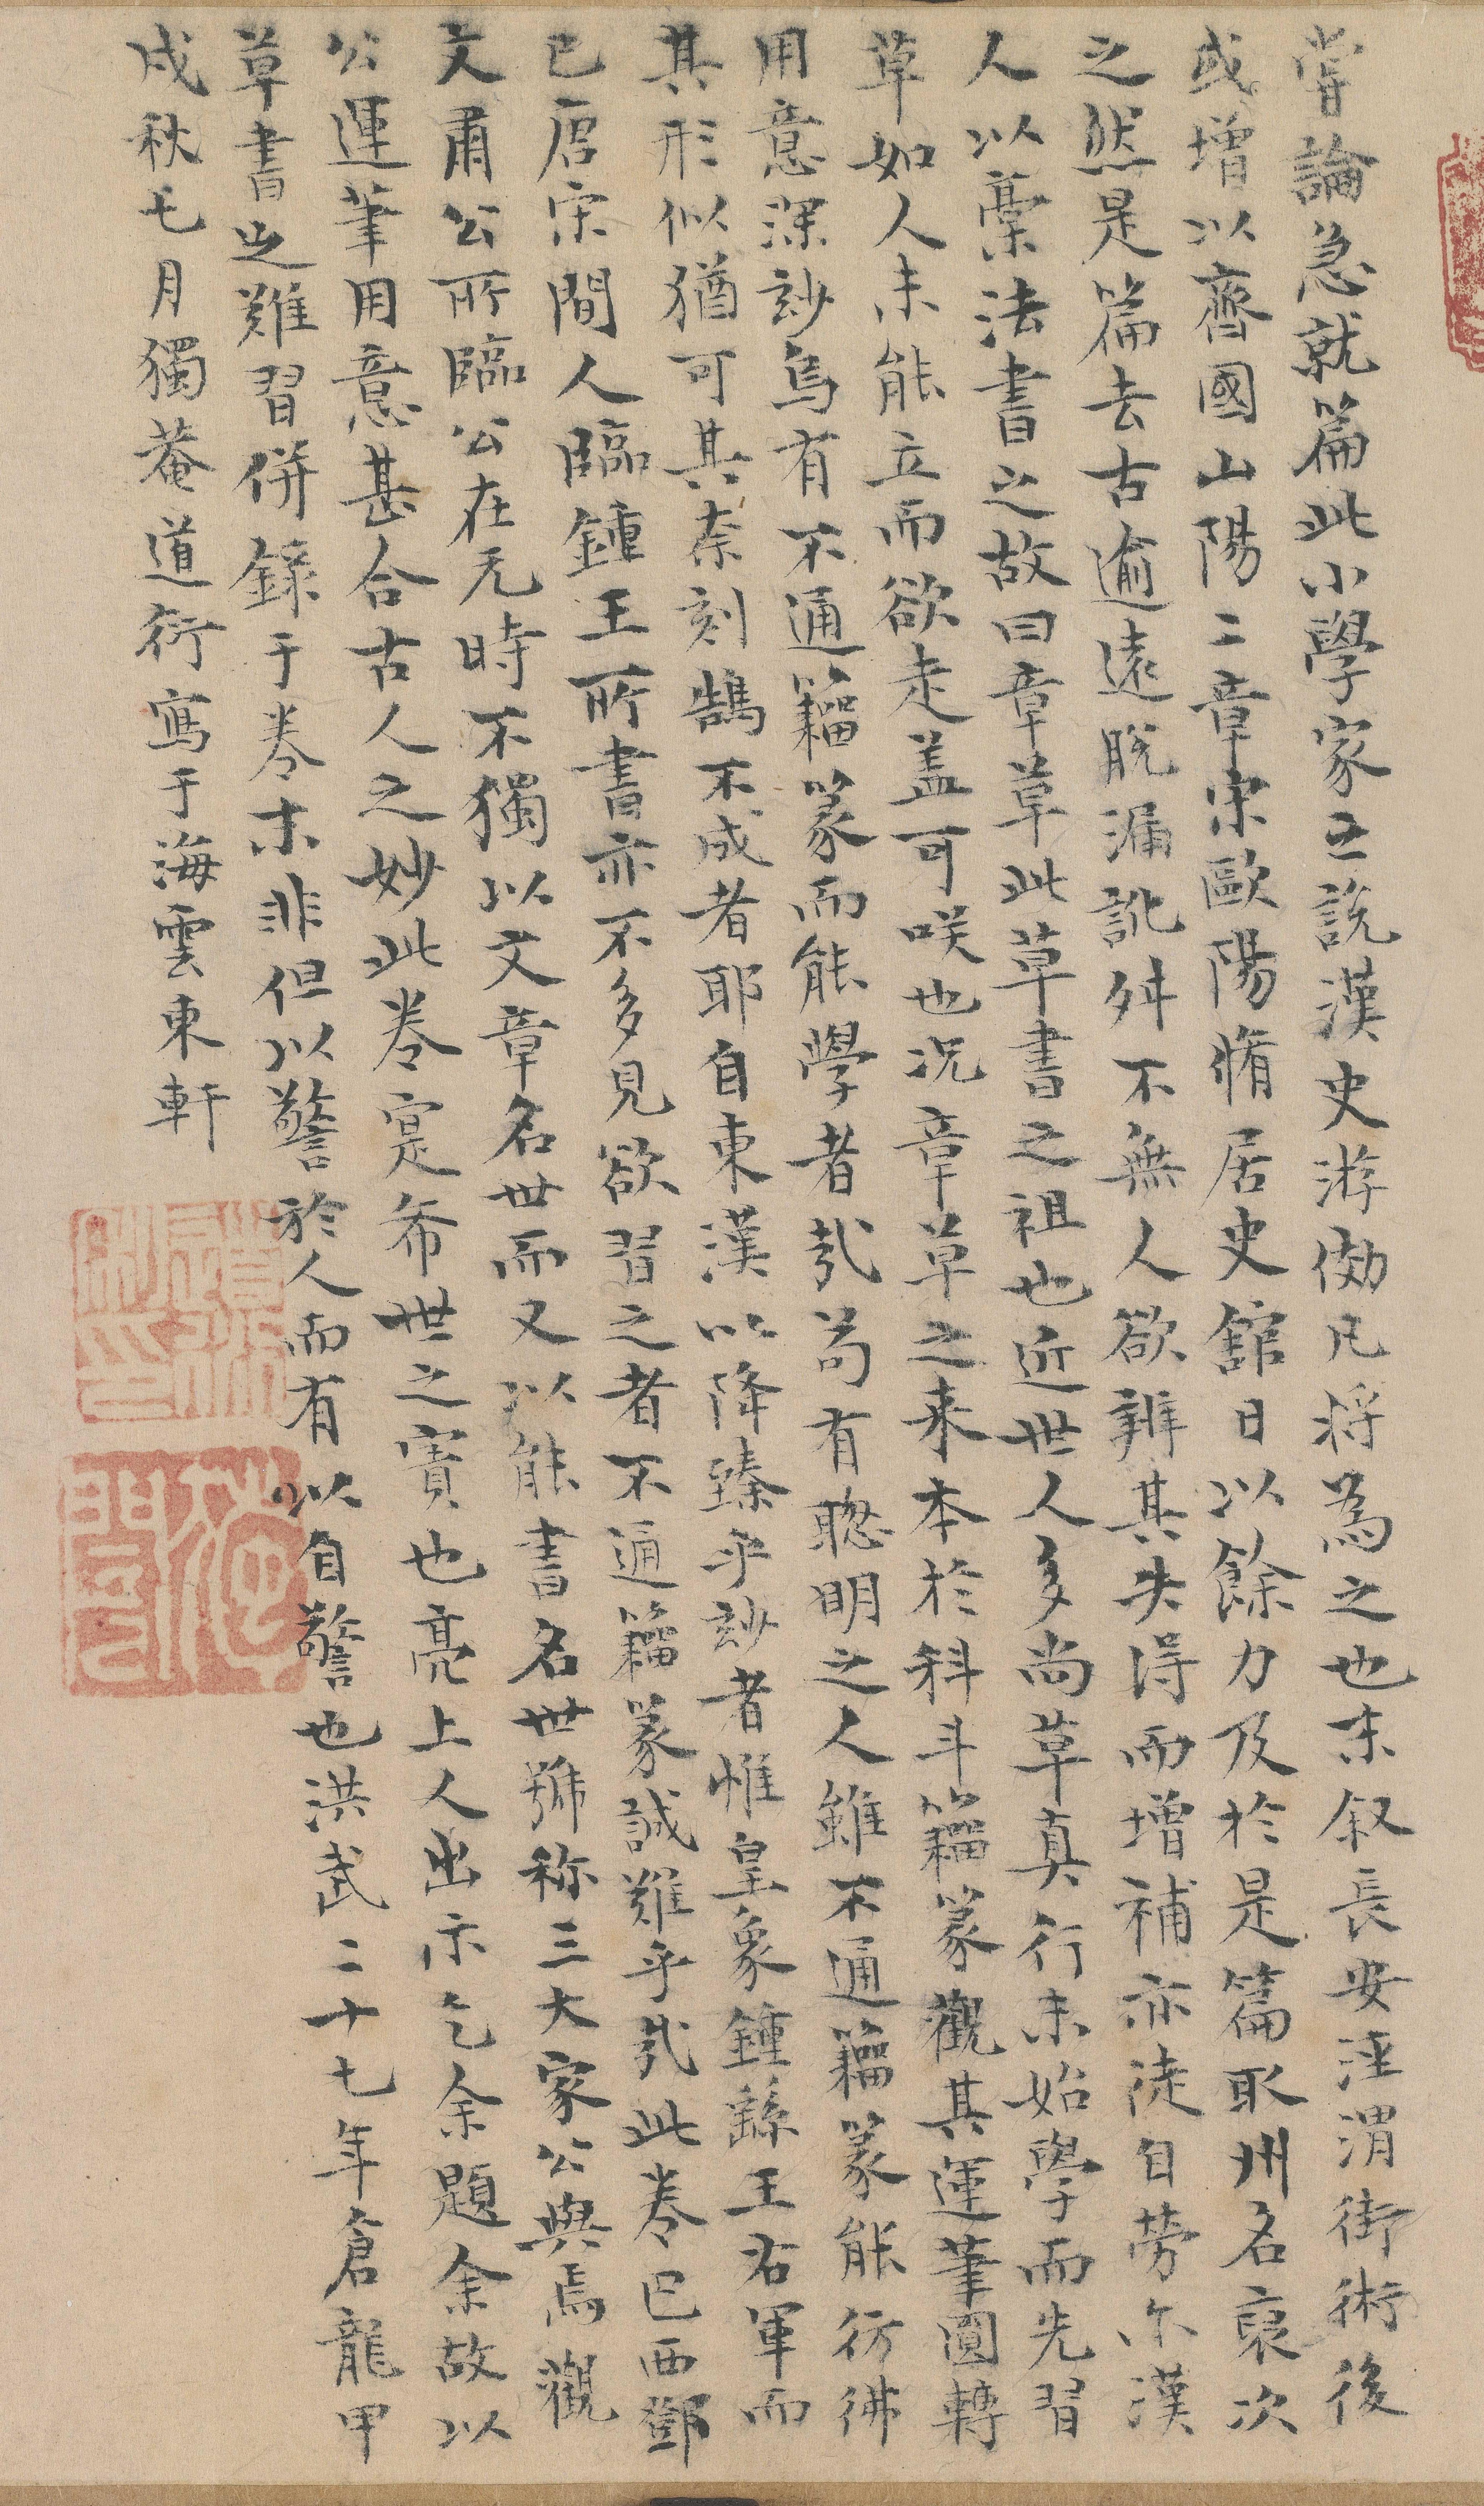 嘗論急就篇此小學家之說漢史游倣凡將為之也末叙長安涇渭街術後
或增以齊國山陽二章宋歐陽脩居史館日以餘力及於是篇取州名裒次
之然是篇去古逾遠脫漏訛舛不無人欲辨其失得而增補亦徒自勞尔漢
人以藁法書之故曰章草此草書之祖也近世人多尚草真行未始學而先習
草如人未能立而欲走盖可咲也况章草之来本於科斗籀篆觀其運筆圓轉
用意深玅烏有不通籀篆而能學者哉苟有聰明之人雖不通籀篆能彷彿
其形似猶可其柰刻鵠不成者耶自東漢以降臻乎玅者惟皇象鍾繇王右軍而
已唐宋間人臨鍾王所書亦不多見欲習之者不通籀篆誠難乎哉此卷巴西鄧
文肅公所臨公在元時不獨以文章名世而又以能書名世號称三大家公與焉觀
公運筆用意甚合古人之妙此卷寔希世之寳也亮上人出示乞余題余故以
草書之難習併録于卷末非但以警於人而有以自警也洪武二十七年倉龍甲
戌秋七月獨菴道衍寫于海雲東軒